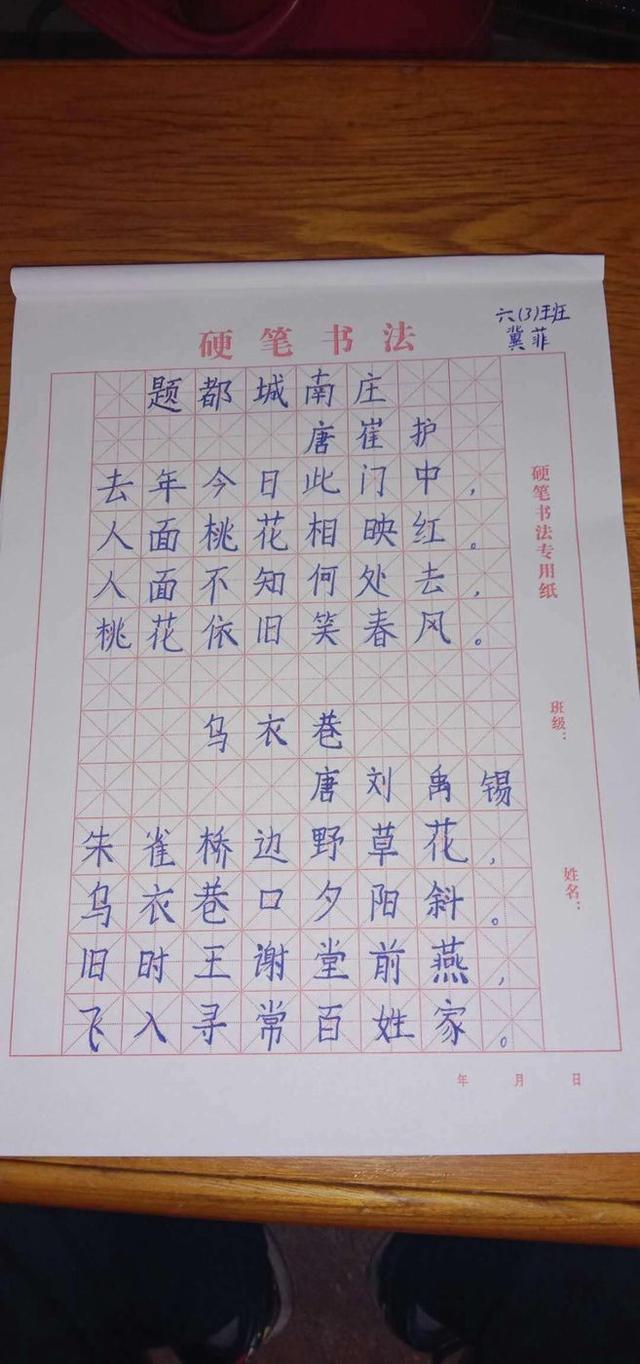 六(3)班
冀菲
硬笔书法
题都城南庄
唐崔护
去年今日此门中，
人面桃花相映红。
人面不知何处去，
桃花依旧笑春风。
乌衣巷
唐刘禹锡
朱雀桥边野草花，
乌衣巷口夕阳斜。
旧时王谢堂前燕，
飞入寻常百姓家。
硬笔书法专用纸
班级：
姓名：
年 月 日